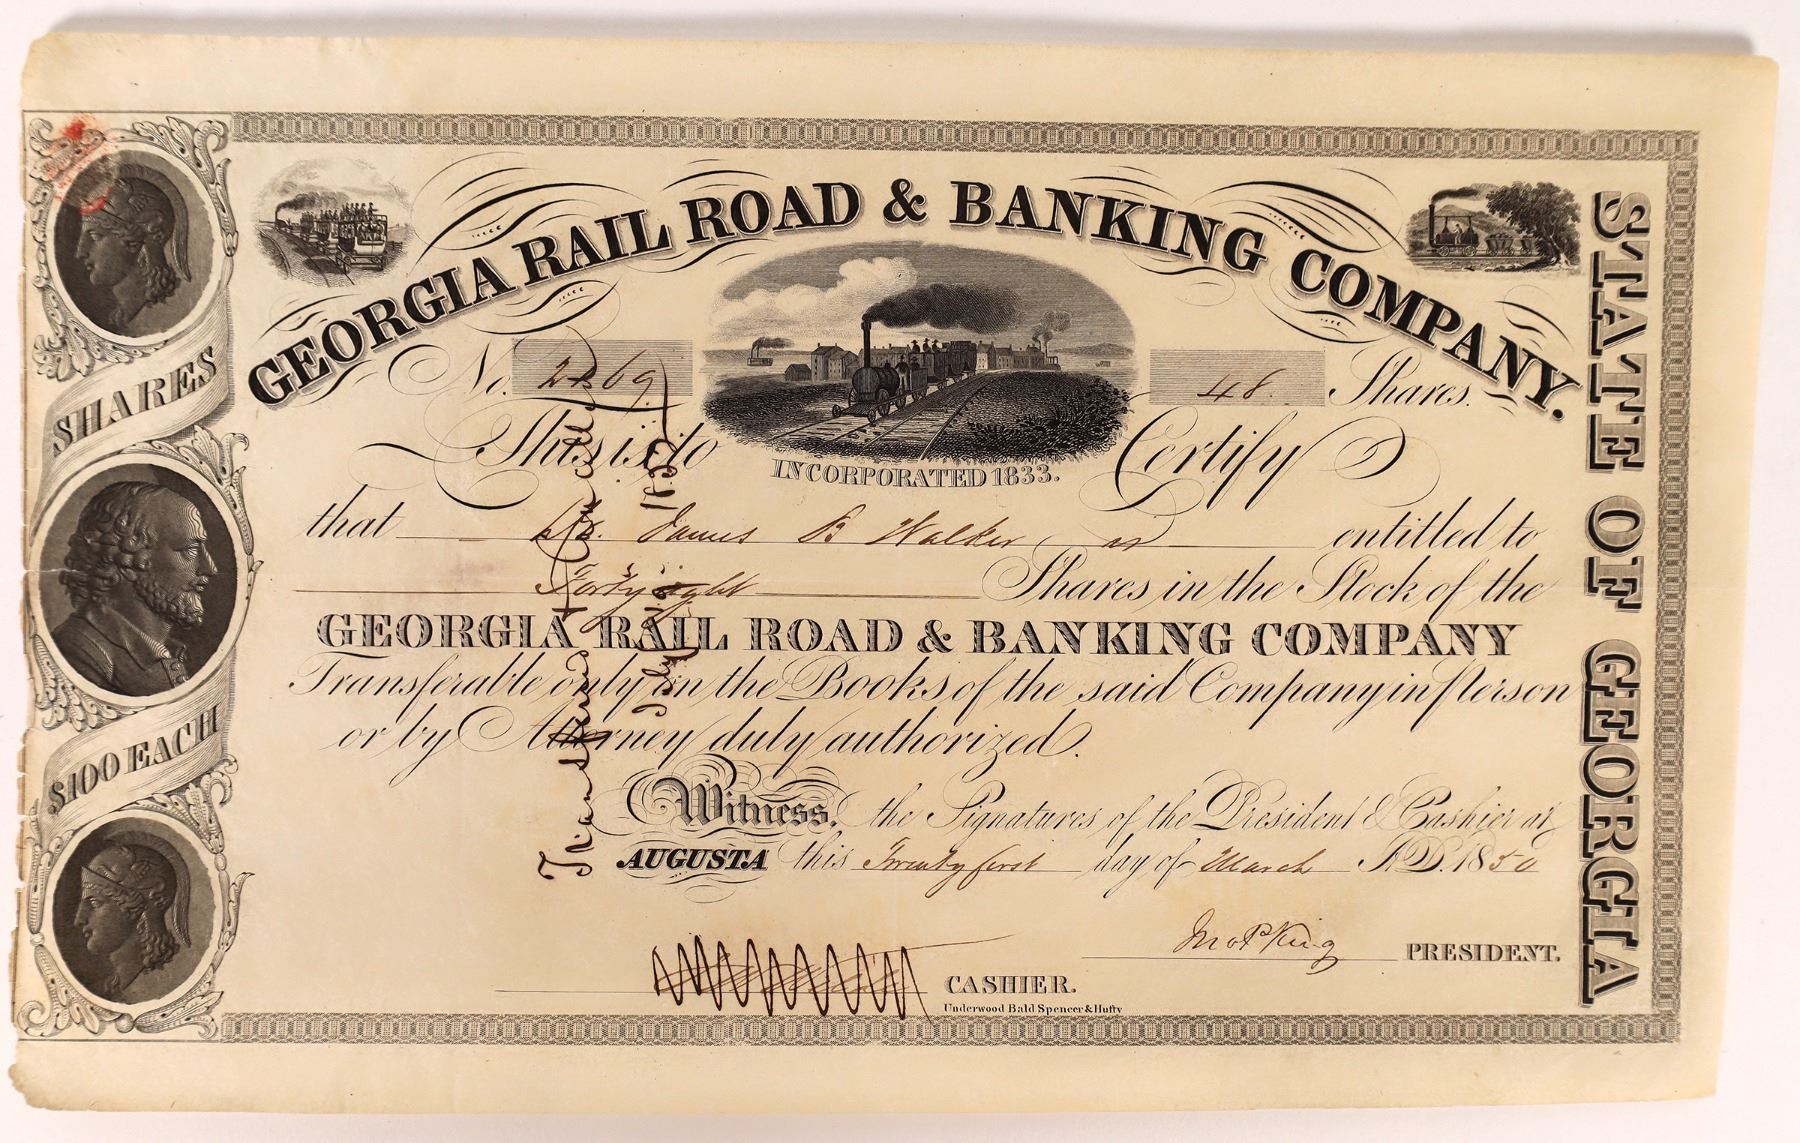 GEORGIA RAIL ROAD & BANKING COMPANY.
No. 2469
48 Shares.
This is to Certify
INCORPORATED 1833.
that James B Walker is entitled to
Forty eight Shares in the Stock of the
GEORGIA RAIL ROAD & BANKING COMPANY
Transferable only on the Books of the said Company in person
or by Attorney duly authorized.
Witness, the Signatures of the President & Cashier at
AUGUSTA this Twenty first day of March A.D. 1850
Jno P King PRESIDENT.
CASHIER.
Underwood Bald Spencer & Hufty
SHARES
$100 EACH
STATE OF GEORGIA
Transferred & Cancelled
July